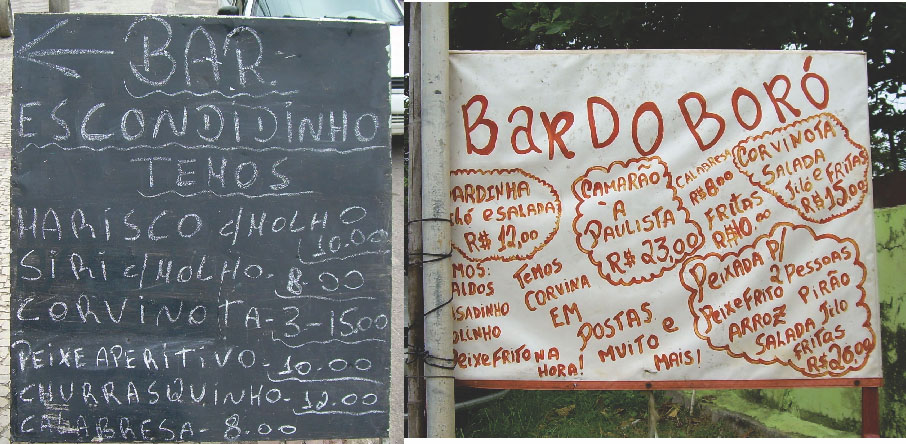 BAR
ESCONDIDINHO
TEMOS
MARISCO C/MOLHO
10.00
SIRI C/MOLHO- 8.00
CORVINOTA-3-15.00
PEIXE APERITIVO-10.00
CHURRASQUINHO-12.00
CALABRESA-8.00
BAR DO BORÓ
ARDINHA
E SALADA
R$ 12,00
CAMARÃO
À
PAULISTA
R$ 23,00
CALABRESA
R$ 8,00
FRITAS
CORVINOTA
SALADA
JILÓ E FRITAS
R$ 15,00
MOS:
ALDOS
SADINHO
OLINHO
PEIXE FRITO NA
HORA!
TEMOS
CORVINA
EM
POSTAS
E
MUITO
MAIS!
PEIXADA P/
2 PESSOAS
PEIXE FRITO
PIRÃO
ARROZ
SALADA JILO
FRITAS
R$ 26,00